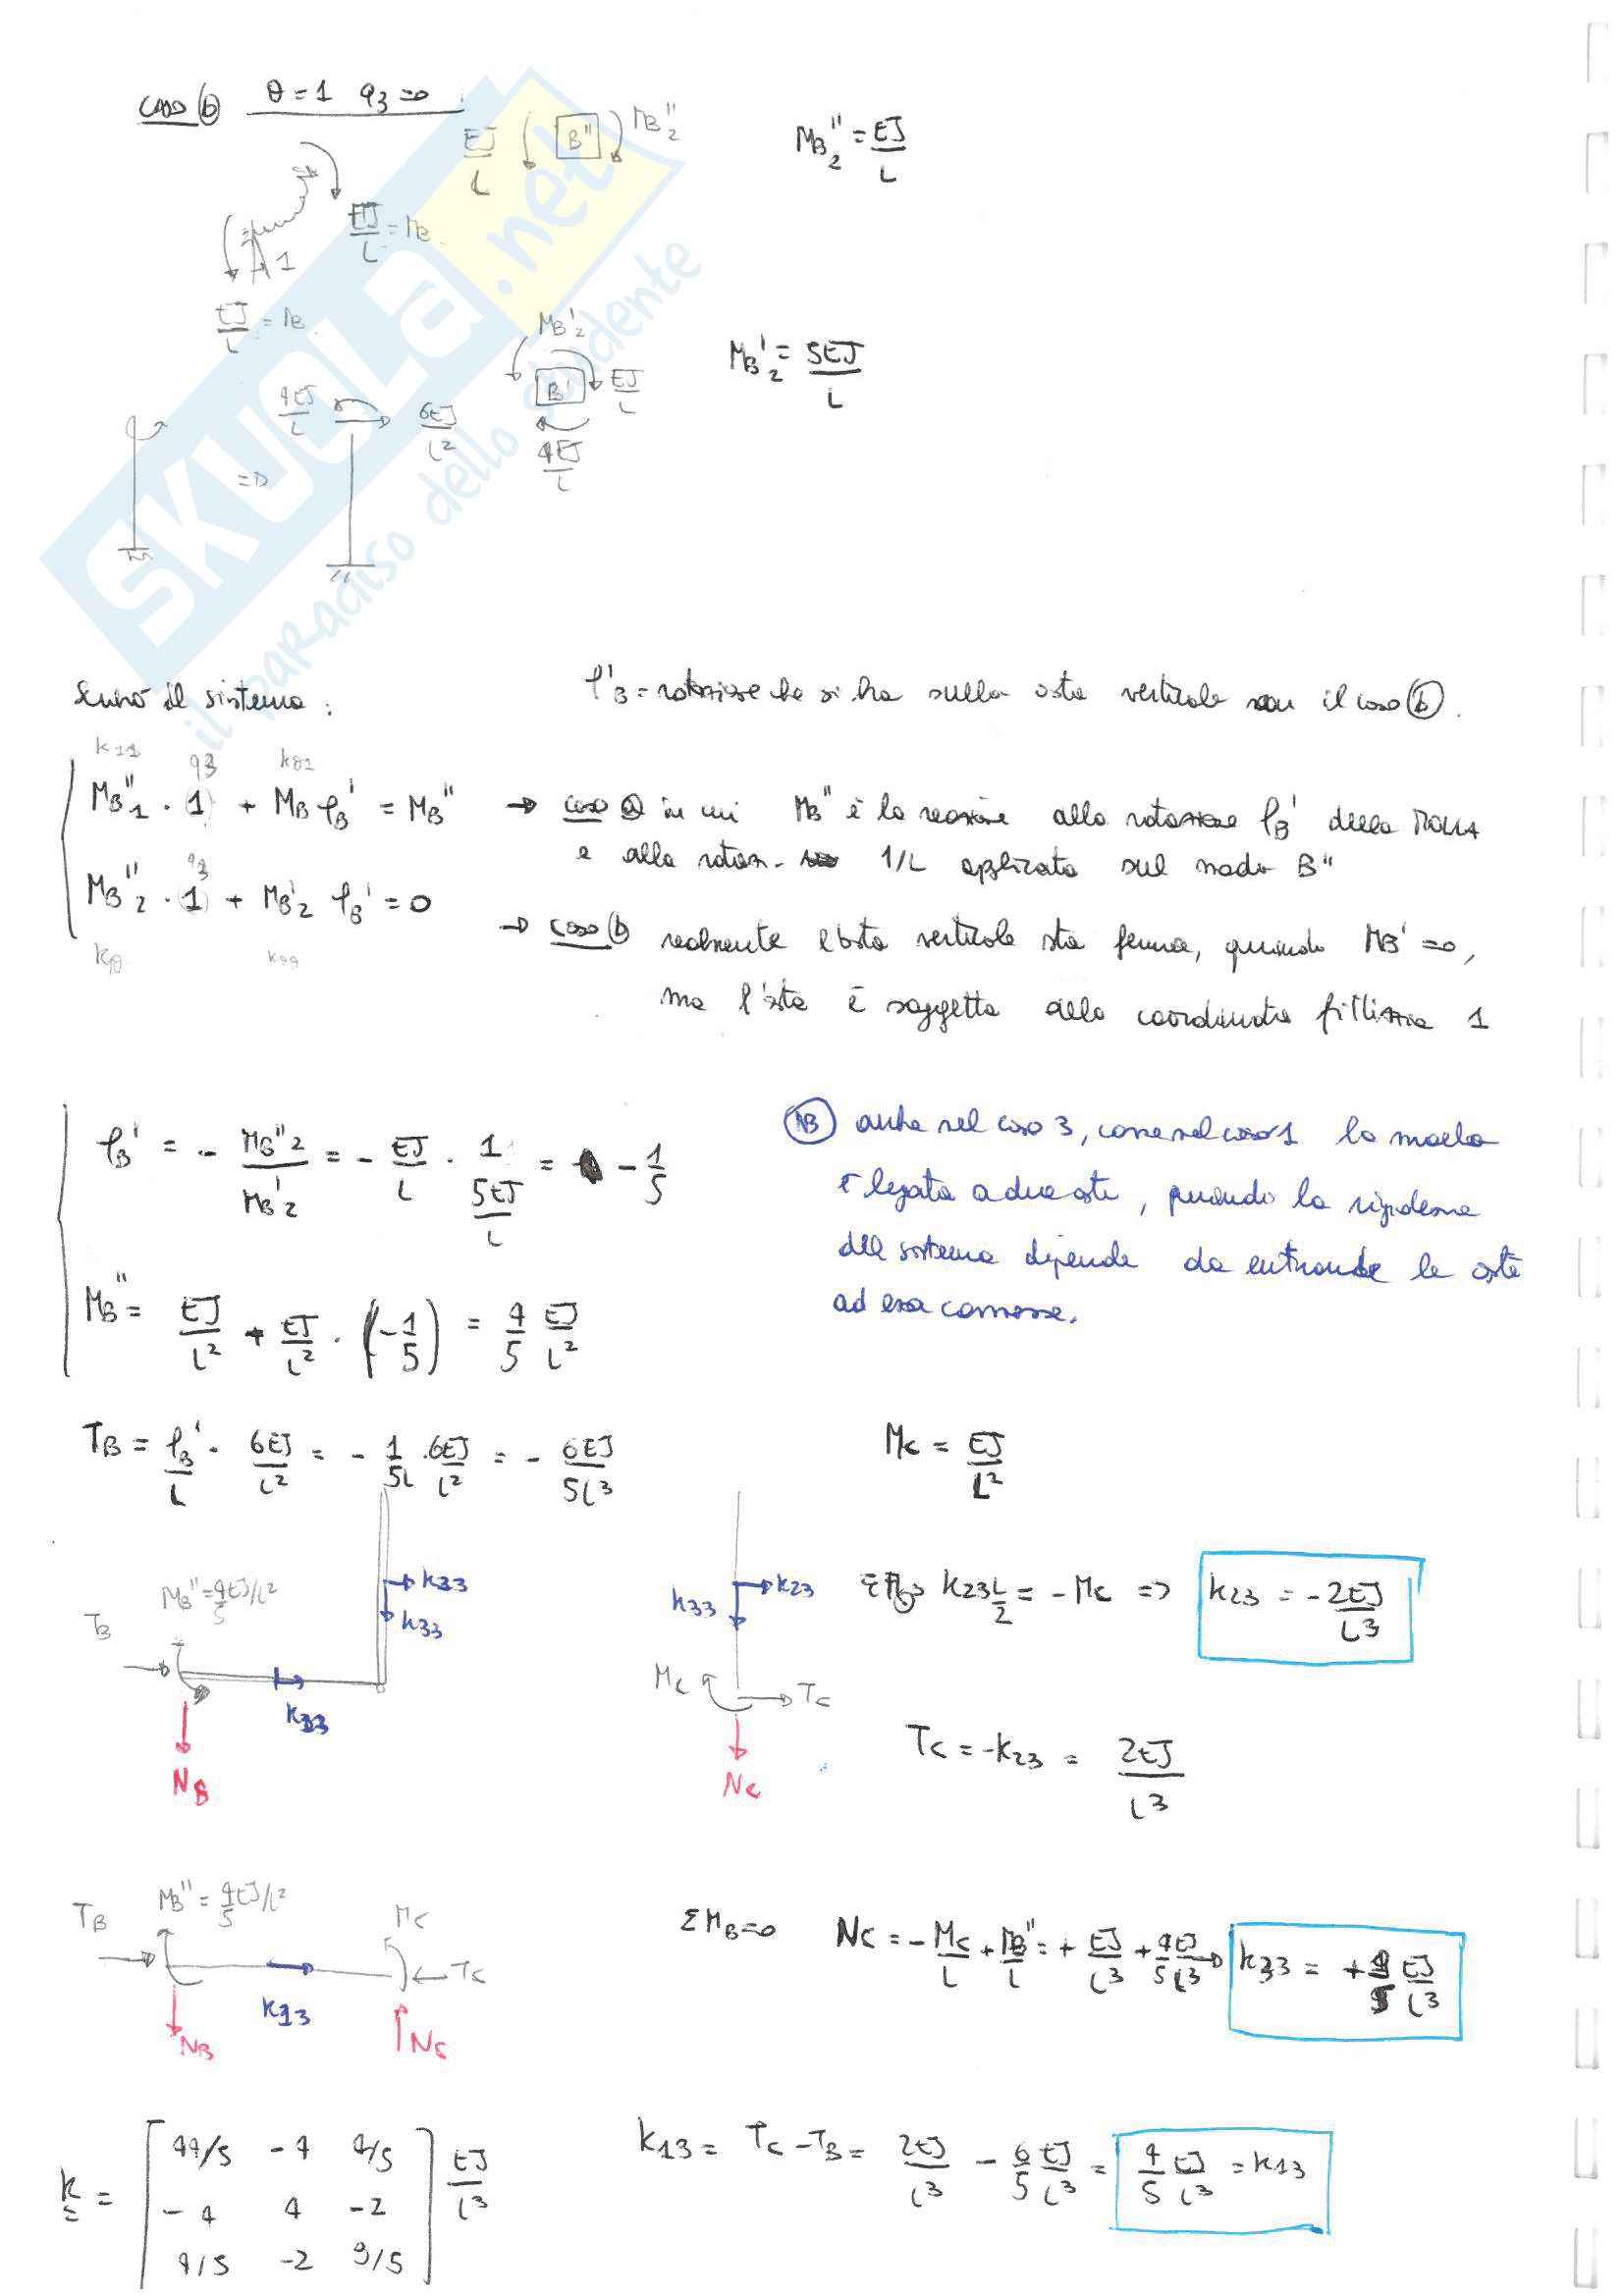 caso (b) θ=1 q3=0
EJ/L B'' MB''2
MB''2 = EJ/L
EJ/L = MB
1
EJ/L = MB
MB'2
MB'2 = 5EJ/L
B' EJ/L
4EJ/L
4EJ/L 6EJ/L²
=D
SKUOLA.net
il paradiso dello studente
il sistema:
φ'B = rotazione che si ha sulla asta verticale il caso (b).
k11 q3 kθ1
MB''1 · 1 + MB φB' = MB'' → caso (a) in cui MB'' è la reazione alla rotazione φB' della MOLLA
e alla rotaz. 1/L applicata sul nodo B''
q3
MB''2 · (1) + MB'2 φB' = 0
→ caso (b) realmente l'asta verticale sta ferma, quindi MB' = 0,
ma l'asta è soggetta alla coordinata fittizia 1
φB' = - MB''2/MB'2 = - EJ/L · 1/(5EJ/L) = - 1/5
MB'' = EJ/L² + EJ/L² · (-1/5) = 4/5 EJ/L²
(NB) anche nel caso 3, come nel caso 1 la molla
è legata a due aste, quindi la rigidezza
del sistema dipende da entrambe le aste
ad essa connesse.
TB = φB'/L · 6EJ/L² = - 1/5L · 6EJ/L² = - 6EJ/5L³
MC = EJ/L²
MB'' = 4/5 EJ/L²
TB
k33
k33
k33
NB
k33 k23
MC TC
NC
k23 L/2 = - MC => k23 = - 2EJ/L³
TC = -k23 = 2EJ/L³
TB MB'' = 4/5 EJ/L² MC
TC
k13
NB NC
ΣMB=0 NC = - MC/L + MB''/L = + EJ/L³ + 4/5 EJ/L³ → k33 = + 9/5 EJ/L³
k = [ 44/5 -4 4/5
-4 4 -2
4/5 -2 9/5 ] EJ/L³
k13 = TC - TB = 2EJ/L³ - 6/5 EJ/L³ = 4/5 EJ/L³ = k13